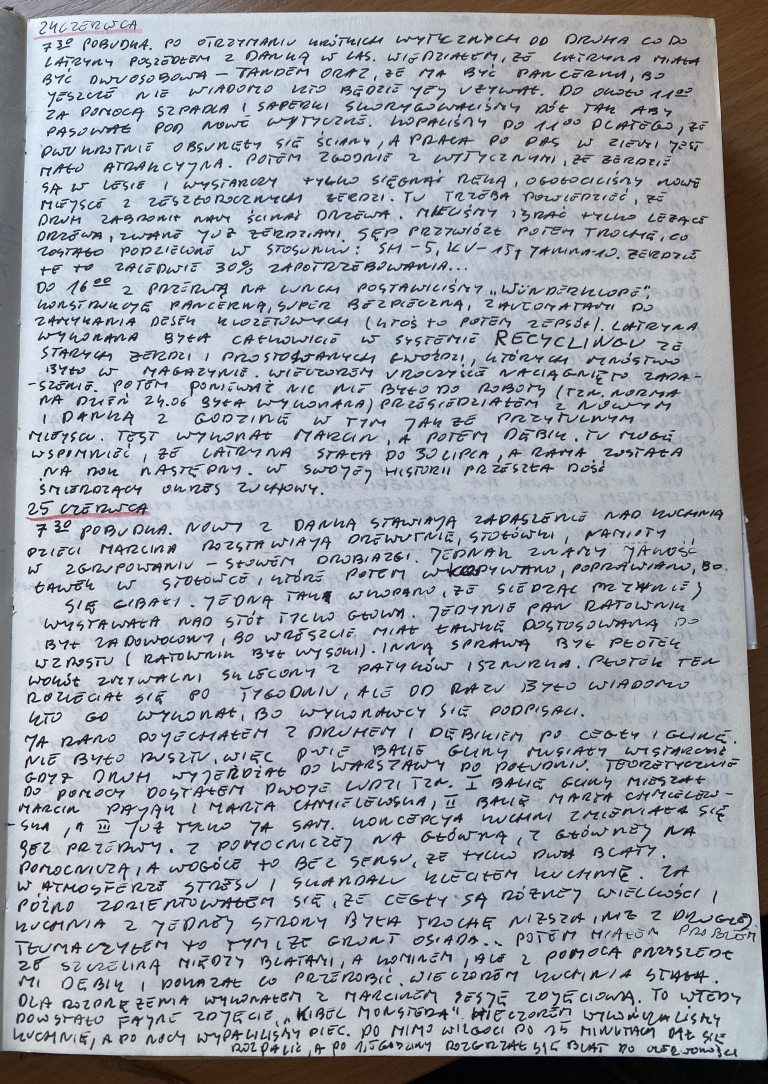 24 CZERWCA
7 30 POBUDKA. PO OTRZYMANIU KRÓTKICH WYTYCZNYCH OD DRUHA CO DO
LATRYNY POSZEDŁEM Z DANKĄ W LAS. WIEDZIAŁEM, ŻE LATRYNA MIAŁA
BYĆ DWUOSOBOWA – TANDEM ORAZ, ŻE MA BYĆ PANCERNA, BO
JESZCZE NIE WIADOMO KTO BĘDZIE JEJ UŻYWAŁ. DO OKOŁO 11 00
ZA POMOCĄ SZPADLA I SAPERKI SKORYGOWALIŚMY DÓŁ TAK ABY
PASOWAŁ POD NOWE WYTYCZNE. KOPALIŚMY DO 11 00 DLATEGO, ŻE
DWUKROTNIE OBSUNĘŁY SIĘ ŚCIANY, A PRACA PO PAS W ZIEMI JEST
MAŁO ATRAKCYJNA. POTEM ZGODNIE Z WYTYCZNYMI, ŻE ŻERDZIE
SĄ W LESIE I WYSTARCZY TYLKO SIĘGNĄĆ RĘKĄ, OGOŁOCILIŚMY NOWE
MIEJSCE Z ZESZŁOROCZNYCH ŻERDZI. TU TRZEBA POWIEDZIEĆ, ŻE
DRUH ZABRONIŁ NAM ŚCINAĆ DRZEWA. MIELIŚMY BRAĆ TYLKO LEŻĄCE
DRZEWA, ZWANE JUŻ ŻERDZIAMI. SĘP PRZYWIÓZŁ POTEM TROCHĘ, CO
ZOSTAŁO PODZIELONE W STOSUNKU: SH-5, KU-15, JANINA-10. ŻERDZIE
TE TO ZALEDWIE 30% ZAPOTRZEBOWANIA...
DO 16 00 Z PRZERWĄ NA LUNCH POSTAWILIŚMY „WUNDERKLOPE",
KONSTRUKCJĘ PANCERNĄ, SUPER BEZPIECZNĄ, Z AUTOMATAMI DO
ZAMYKANIA DESEK KLOZETOWYCH (KTOŚ TO POTEM ZEPSÓŁ). LATRYNA
WYKONANA BYŁA CAŁKOWICIE W SYSTEMIE RECYCLINGU ZE
STARYCH ŻERDZI I PROSTOWANYCH GWOŹDZI, KTÓRYCH MNÓSTWO
BYŁO W MAGAZYNIE. WIECZOREM UROCZYŚCIE NACIĄGNIĘTO ZADA-
-SZENIE. POTEM PONIEWAŻ NIC NIE BYŁO DO ROBOTY (TZN. NORMA
NA DZIEŃ 24.06 BYŁA WYKONANA) PRZESIEDZIAŁEM Z NOWYM
I DANKĄ Z GODZINĘ W TYM JAKŻE PRZYTULNYM
MIEJSCU. TEST WYKONAŁ MARCIN, A POTEM DĘBIK. TU MOGĘ
WSPOMNIEĆ, ŻE LATRYNA STAŁA DO 30 LIPCA, A RAMA ZOSTAŁA
NA ROK NASTĘPNY. W SWOJEJ HISTORII PRZESZŁA DOŚĆ
ŚMIERDZĄCY OKRES ZUCHOWY.
25 CZERWCA
7 30 POBUDKA. NOWY Z DANKĄ STAWIAJĄ ZADASZENIE NAD KUCHNIĄ
DZIECI MARCINA ROZSTAWIAJĄ DREWUTNIE, STOŁÓWKI, NAMIOTY
W ZGRUPOWANIU – SŁOWEM DROBIAZGI. JEDNAK ZNAMY JAKOŚĆ
ŁAWEK W STOŁÓWCE, KTÓRE POTEM WKOPYWANO, POPRAWIANO, BO
SIĘ GIBAŁY. JEDNĄ TAK WKOPANO, ŻE SIEDZĄC PRZY NIEJ
WYSTAWAŁA NAD STÓŁ TYLKO GŁOWA. JEDYNIE PAN RATOWNIK
BYŁ ZADOWOLONY, BO WRESZCIE MIAŁ ŁAWKĘ DOSTOSOWANĄ DO
WZROSTU (RATOWNIK BYŁ WYSOKI). INNĄ SPRAWĄ BYŁ PŁOTEK
WOKÓŁ ZMYWALNI SKLECONY Z PATYKÓW I SZNURKA. PŁOTEK TEN
ROZLECIAŁ SIĘ PO TYGODNIU, ALE OD RAZU BYŁO WIADOMO
KTO GO WYKONAŁ, BO WYKONAWCY SIĘ PODPISALI.
JA RANO POJECHAŁEM Z DRUHEM I DĘBIKIEM PO CEGŁY I GLINĘ.
NIE BYŁO RUSZTU, WIĘC DWIE BALIE GLINY MUSIAŁY WYSTARCZYĆ
GDYŻ DRUH WYJEŻDŻAŁ DO WARSZAWY PO POŁUDNIU. TEORETYCZNIE
DO POMOCY DOSTAŁEM DWOJE LUDZI TZN. I BALIĘ GLINY MIESZAŁ
MARCIN PAJĄK I MARTA CHMIELEWSKA, II BALIĘ MARTA CHMIELEW-
-SKA, A III JUŻ TYLKO JA SAM. KONCEPCJA KUCHNI ZMIENIAŁA SIĘ
BEZ PRZERWY. Z POMOCNICZEJ NA GŁÓWNĄ, Z GŁÓWNEJ NA
POMOCNICZĄ, A WOGÓLE TO BEZ SENSU, ŻE TYLKO DWA BLATY.
W ATMOSFERZE STRESU I SKANDALU KLECIŁEM KUCHNIĘ. ZA
PÓŹNO ZORIENTOWAŁEM SIĘ, ŻE CEGŁY SĄ RÓŻNEJ WIELKOŚCI I
KUCHNIA Z JEDNEJ STRONY BYŁA TROCHĘ NIŻSZA, NIŻ Z DRUGIEJ.
TŁUMACZYŁEM TO TYM, ŻE GRUNT OSIADA... POTEM MIAŁEM PROBLEM
ZE SZCZELINĄ MIĘDZY BLATAMI, A KOMINEM, ALE Z POMOCĄ PRZYSZEDŁ
MI DĘBIK I POKAZAŁ CO PRZEROBIĆ. WIECZOREM KUCHNIA STAŁA.
DLA ROZPRĘŻENIA WYKONAŁEM Z MARCINEM SESJĘ ZDJĘCIOWĄ. TO WTEDY
POWSTAŁO FAJNE ZDJĘCIE „KIBEL MONSTERA". WIECZOREM WYKOŃCZYLIŚMY
KUCHNIĘ, A PO NOCY WYPALILIŚMY PIEC. PO MIMO WILGOCI PO 15 MINUTACH DAŁ SIĘ
ROZPALIĆ, A PO 1,5 GODZINY ROZGRZAŁ SIĘ BLAT DO CZERWONOŚCI